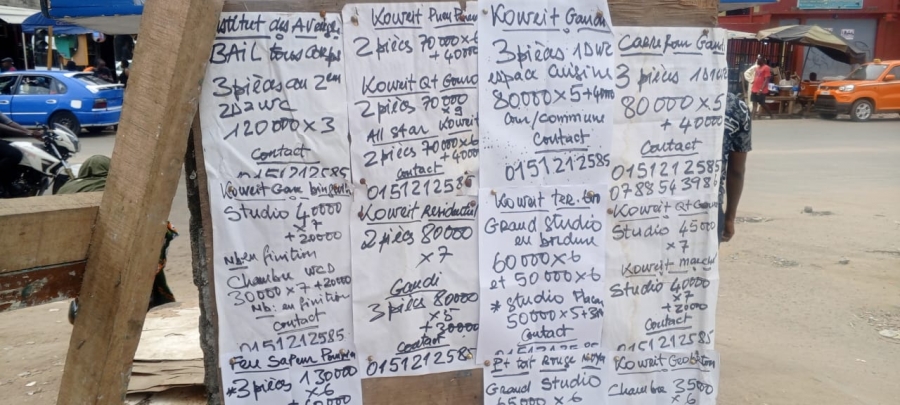 Institut des Aveugles
BAIL tous corps
3 pièces au 2em
2D2WC
120000 x 3
Contact
0151212585
Koweit Gare
Studio 40000
x7
+20000
Nb: en finition
Chambre WCD
30000 x 7 +20000
Nb: en finition
Contact
0151212585
Feu Sapeur
*3 pièces 130000
x6
Koweit
2 pièces 70000 x 6
+ 40000
Koweit Qt
2 pièces 70000
x9
All star Koweit
2 pièces 70000 x 6
+4000
Contact
0151212585
Koweit Résidentiel
2 pièces 80000
x7
Gaudi
3 pièces 80000
x5
+30000
Contact
0151212585
Koweit
3 pièces 1DWC
espace cuisine
80000 x 5+4000
Cour/commune
Contact
0151212585
Koweit
Grand Studio
en bordure
60000 x 6
et 50000 x 6
* Studio
50000 x 5+
Contact
0151212585
Pt toit Rouge
Grand Studio
65000 x 6
Carrefour
3 pièces
80000 x 5
+ 40000
Contact
0151212585
Koweit Qt
Studio 45000
x7
Koweit marché
Studio 40000
x7
+20000
Contact
0151212585
Koweit
Chambre 35000
x6